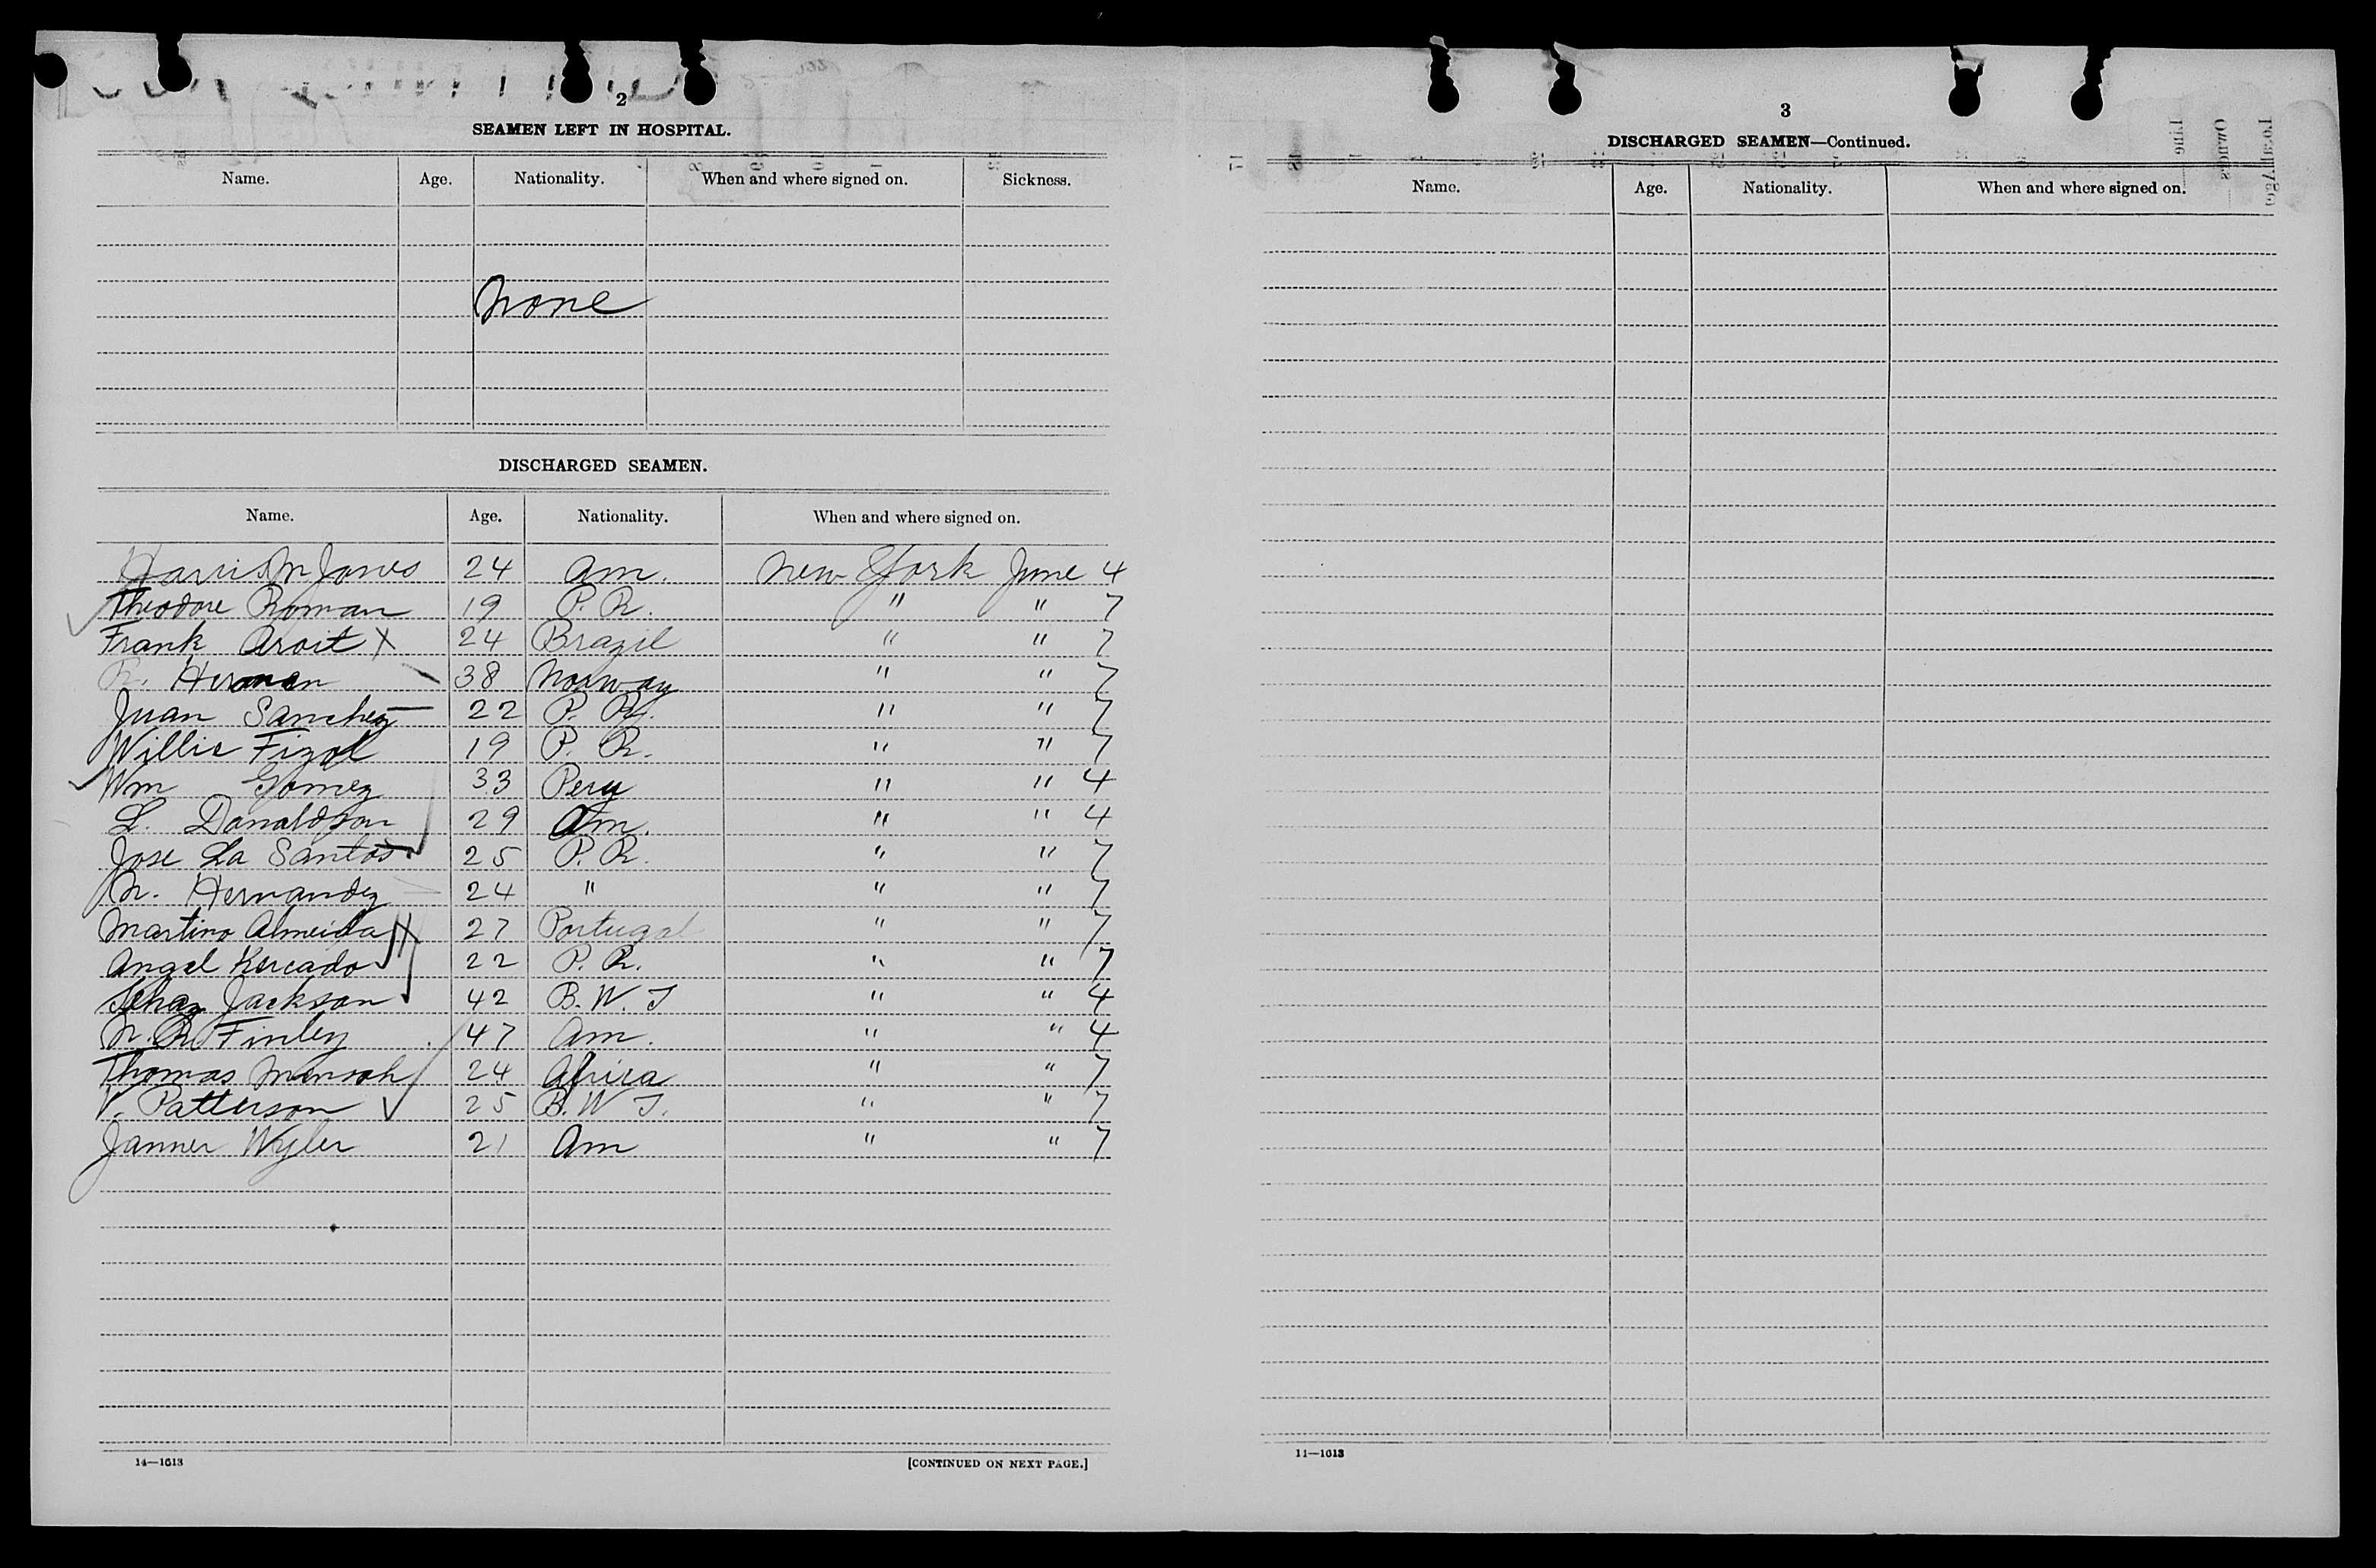 2
SEAMEN LEFT IN HOSPITAL.
Name. Age. Nationality. When and where signed on. Sickness.
None
DISCHARGED SEAMEN.
Name. Age. Nationality. When and where signed on.
Harris M Jones 24 Am. New York June 4
Theodore Roman 19 P. R. " " 7
Frank Aroit X 24 Brazil " " 7
Herman 38 Norway " " 7
Juan Sanchez 22 P. R. " " 7
Willie Fizol 19 P. R. " " 7
Wm Gomez 33 Peru " " 4
L. Donaldson 29 Am. " " 4
Jose La Santos 25 P. R. " " 7
Hernandez 24 " " " 7
Martino Almeida 27 Portugal " " 7
Angel Kercado 22 P. R. " " 7
Jackson 42 B. W. I " " 4
Finley 47 Am. " " 4
Thomas Mensah 24 Africa " " 7
V. Patterson 25 B. W I. " " 7
Janner Wyler 21 Am " " 7
14—1613
[CONTINUED ON NEXT PAGE.]
3
DISCHARGED SEAMEN—Continued.
Name. Age. Nationality. When and where signed on.
11—1613